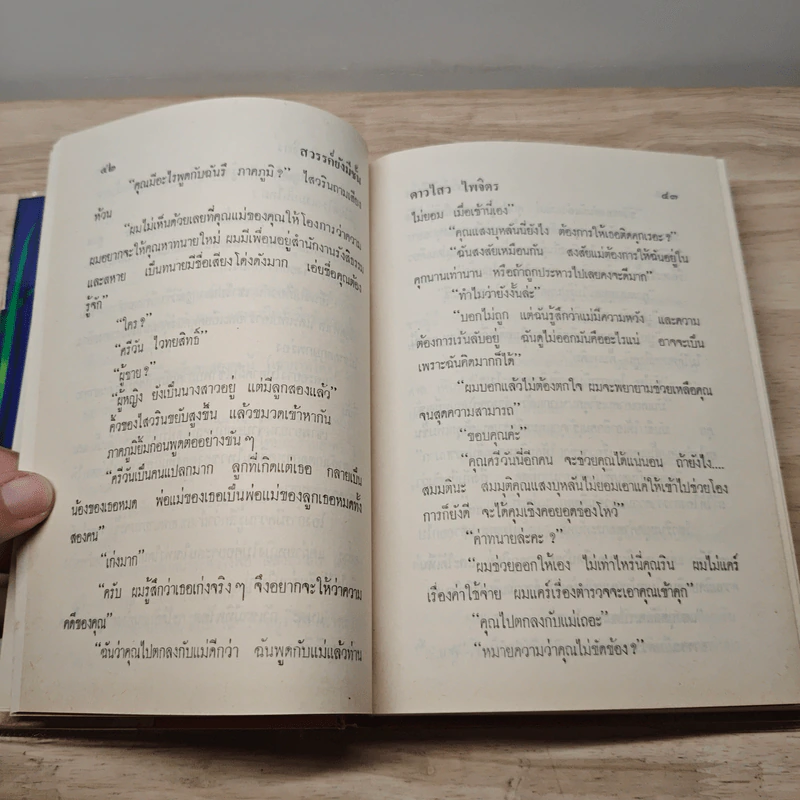 ๔๒
สวรรค์ยังมีชั้น
“คุณมีอะไรพูดกับฉันรึ ภาคภูมิ ?” ไสวรินถามเสียง
ห้วน
“ผมไม่เห็นด้วยเลยที่คุณแม่ของคุณให้โองการว่าความ
ผมอยากจะให้คุณหาทนายใหม่ ผมมีเพื่อนอยู่สำนักงานรังสิธรรม
และสหาย เป็นทนายมีชื่อเสียงโด่งดังมาก เอ่ยชื่อคุณต้อง
รู้จัก”
“ใคร ?”
“ศรีวัน ไวทยสิทธิ์”
“ผู้ชาย ?”
“ผู้หญิง ยังเป็นนางสาวอยู่ แต่มีลูกสองแล้ว”
คิ้วของไสวรินขยับสูงขึ้น แล้วขมวดเข้าหากัน
ภาคภูมิยิ้มก่อนพูดต่ออย่างขัน ๆ
“ศรีวันเป็นคนแปลกมาก ลูกที่เกิดแต่เธอ กลายเป็น
น้องของเธอหมด พ่อแม่ของเธอเป็นพ่อแม่ของลูกเธอหมดทั้ง
สองคน”
“เก่งมาก”
“ครับ ผมรู้สึกว่าเธอเก่งจริง ๆ จึงอยากจะให้ว่าความ
คดีของคุณ”
“ฉันว่าคุณไปตกลงกับแม่ดีกว่า ฉันพูดกับแม่แล้วท่าน
ดาวไสว ไพจิตร
๔๓
ไม่ยอม เมื่อเช้านี้เอง”
“คุณแสงบุหลันนี่ยังไง ต้องการให้เธอติดคุกเรอะ ?”
“ฉันสงสัยเหมือนกัน สงสัยแม่ต้องการให้ฉันอยู่ใน
คุกนานเท่านาน หรือถ้าถูกประหารไปเลยคงจะดีมาก”
“ทำไมว่ายังงั้นล่ะ”
“บอกไม่ถูก แต่ฉันรู้สึกว่าแม่มีความหวัง และความ
ต้องการเร้นลับอยู่ ฉันดูไม่ออกมันคืออะไรแน่ อาจจะเป็น
เพราะฉันคิดมากก็ได้”
“ผมบอกแล้วไม่ต้องตกใจ ผมจะพยายามช่วยเหลือคุณ
จนสุดความสามารถ”
“ขอบคุณค่ะ”
“คุณศรีวันนี่อีกคน จะช่วยคุณได้แน่นอน ถ้ายังไง....
สมมตินะ สมมุติคุณแสงบุหลันไม่ยอมเอาแคให้เข้าไปช่วยโอง
การก็ยังดี จะได้คุมเชิงคอยอุดช่องโหว่”
“ค่าทนายล่ะคะ ?”
“ผมช่วยออกให้เอง ไม่เท่าไหร่นี่คุณริน ผมไม่แคร์
เรื่องค่าใช้จ่าย ผมแคร์เรื่องตำรวจจะเอาคุณเข้าคุก”
“คุณไปตกลงกับแม่เถอะ”
“หมายความว่าคุณไม่ขัดข้อง ?”